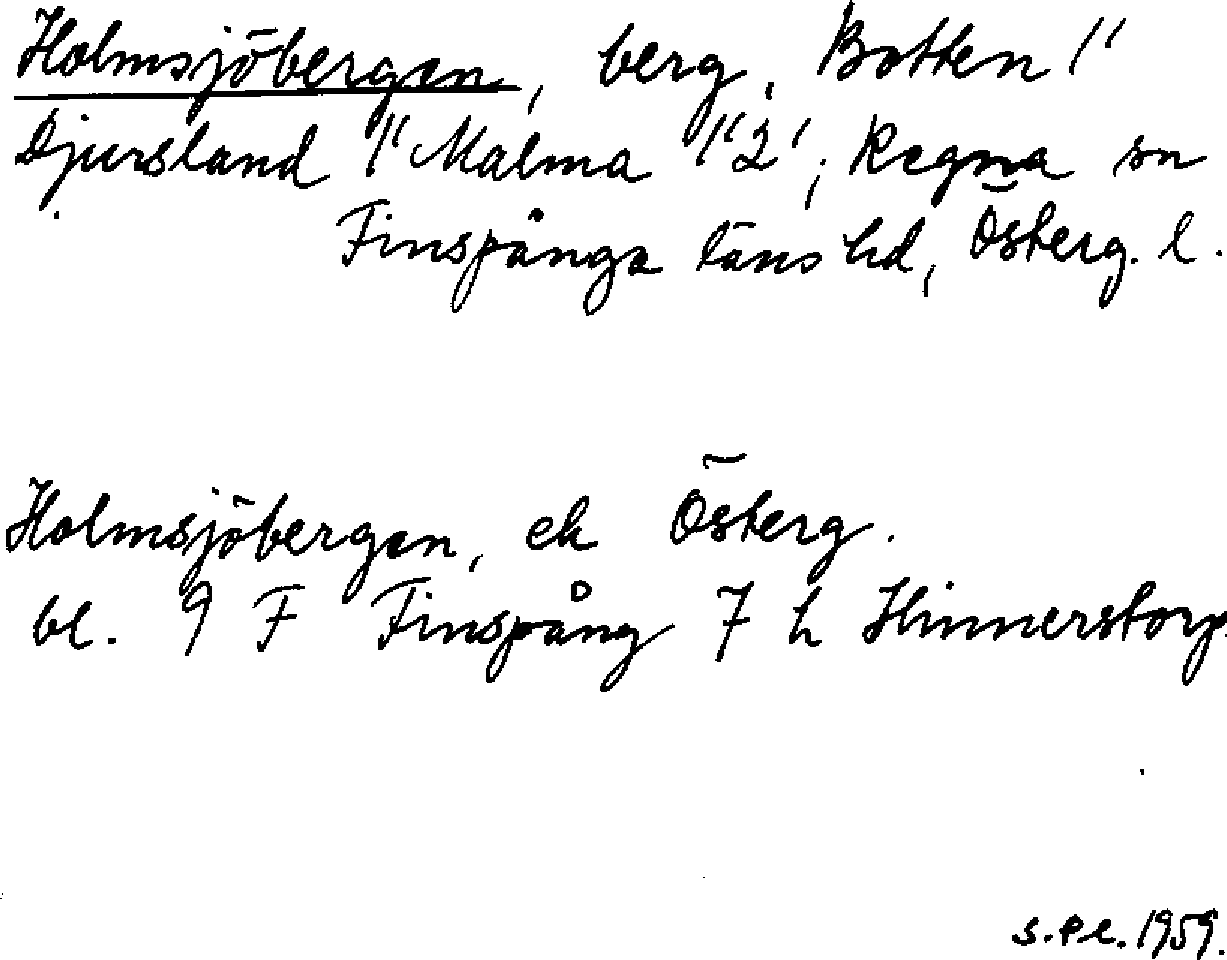 Holmsjöbergen, berg, Botten 1"
Djursland 1" Malma 1"2', Regna sn
Finspånga läns hd, Österg. l.
Holmsjöbergen, ek Österg.
bl. 9 F Finspång 7 h Hinnerstorp.
s.Pl. 1959.